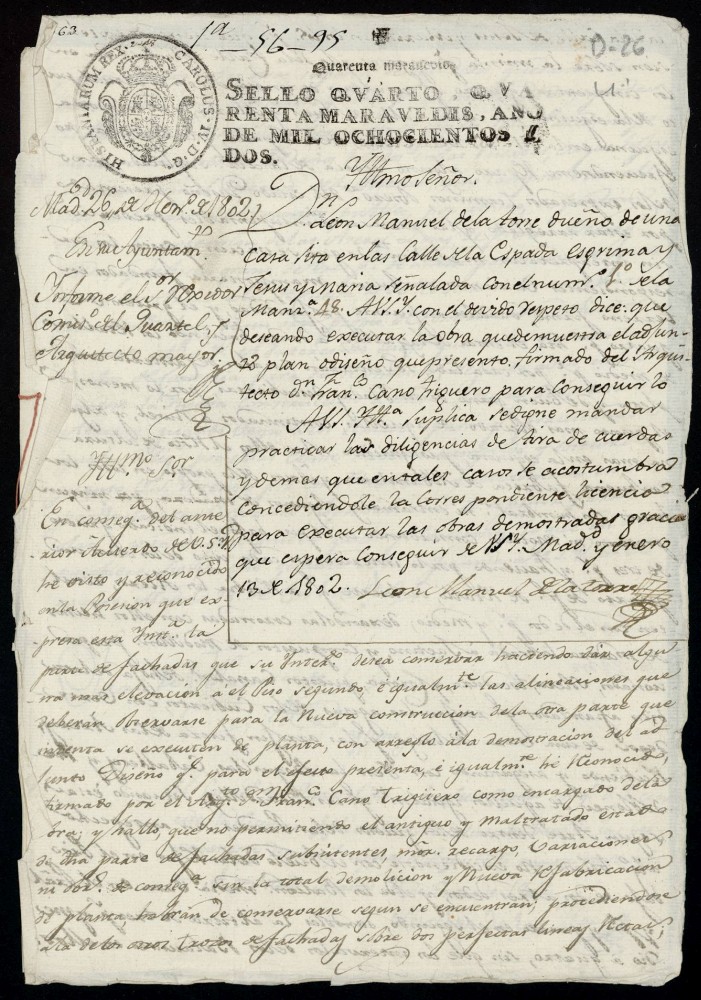 63
1ª - 56 - 95
0-26
HISPANIARUM REX. CAROLUS. IV. D. G.
Quarenta maravedis
SELLO QVARTO, QVA
RENTA MARAVEDIS, AÑO
DE MIL OCHOCIENTOS
DOS.
Yltmo Señor.
Dn. Leon Manuel de la torre dueño de una
casa sita en las Calle de la Espada Esgrima y
Jesus y Maria señalada con el num.º 1.º de la
Manz.ª 48. A V.S.Y. con el devido respeto dice: que
deseando executar la obra que demuestra el adjun
to plan o diseño que presento, firmado del Arqui
tecto dn. Fran.co Cano triguero para conseguir lo
A V.S. Yll.ª Suplica se digne mandar
practicar las diligencias de tira de cuerdas
y demas que en tales casos se acostumbra
concediendole la Correspondiente licencia
para executar las obras demostradas gracia
que espera Conseguir de VSY. Mad.d y enero
13 de 1802. Leon Manuel de la torre
Mad.d 26, de Hen.º de 1802
En su Ayuntam.to
Informe el S.or Rexidor
Comis.º del Quartel, y
Arquitecto mayor.
Yllmo. S.or
En conseq.ª del ante
rior Acuerdo de V.S.Y.
he visto y reconocido
en la Posesion que ex
presa esta Inst.ª la
parte de fachadas que su Inter.do desea conservar haciendo dar algu
na mas elevacion á el Piso segundo é igualm.te las alineaciones que
deberán observarse para la Nueva construccion de la otra parte que
intenta se executen de planta, con arreglo á la demostracion del ad
junto Diseño q.e para el efecto presenta, é igualm.te hé Reconocido,
firmado por el Arq.to d.n Fran.co Cano Trigüero como encargado de la
obra; y hallo, que no permitiendo el antiguo y maltratado estado
de dha parte de fachadas subsistentes, mor. recargo, Variaciones
ni obr.s de conseq.ª sin la total demolicion y Nueva refabricacion
de planta habrán de conservarse segun se encuentran; procediendose
á la de los otros trozos de fachadas sobre dos perfectas lineas Rectas;